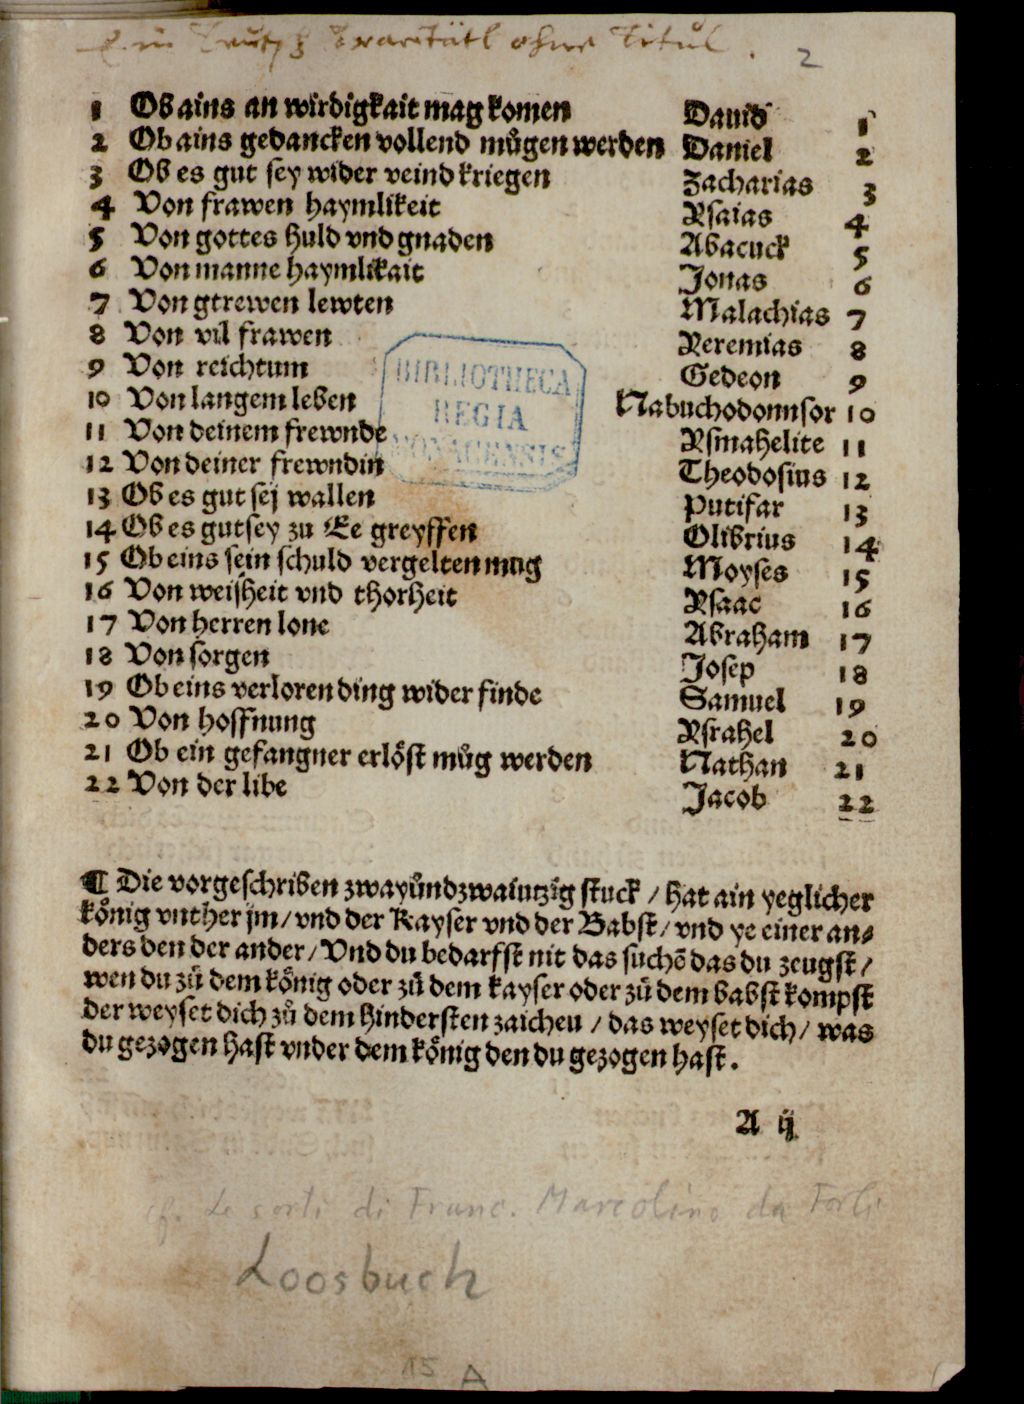 Ein Teutsch Tractätl ohne Titul. 2
1 Ob ains an wirdigkait mag komen Dauid 1
2 Ob ains gedancken vollend můgen werden Daniel 2
3 Ob es gut sey wider veind kriegen Zacharias 3
4 Von frawen haymlikeit Ysaias 4
5 Von gottes huld vnd gnaden Abacuck 5
6 Von manne haymlikait Jonas 6
7 Von gtrewen lewten Malachias 7
8 Von vil frawen Yeremias 8
9 Von reichtum Gedeon 9
10 Von langem leben Nabuchodonnsor 10
11 Von deinem frewnde Ysmahelite 11
12 Von deiner frewndin Theodosius 12
13 Ob es gut sej wallen Putifar 13
14 Ob es gut sey zu Ee greyffen Olibrius 14
15 Ob eins sein schuld vergelten mug Moyses 15
16 Von weisheit vnd thorheit Ysaac 16
17 Von herren lone Abraham 17
18 Von sorgen Josep 18
19 Ob eins verloren ding wider finde Samuel 19
20 Von hoffnung Ysrahel 20
21 Ob ein gefangner erlöst můg werden Nathan 21
22 Von der libe Jacob 22
BIBLIOTHECA
REGIA
MONACENSIS
¶ Die vorgeschriben zwayůndzwaintzig stuck / hat ain yeglicher
kőnig vnther jm / vnd der Kayser vnd der Babst / vnd ye einer an⸗
ders den der ander / Vnd du bedarfst nit das suchē das du zeugst /
wen du zů dem kőnig oder zů dem kayser oder zů dem babst kompst
der weyset dich zů dem hindersten zaichen / das weyset dich / was
du gezogen hast vnder dem kőnig den du gezogen hast.
A ij
cf. Le sorti di Franc. Marcolino da Forli
Loosbuch
15 A